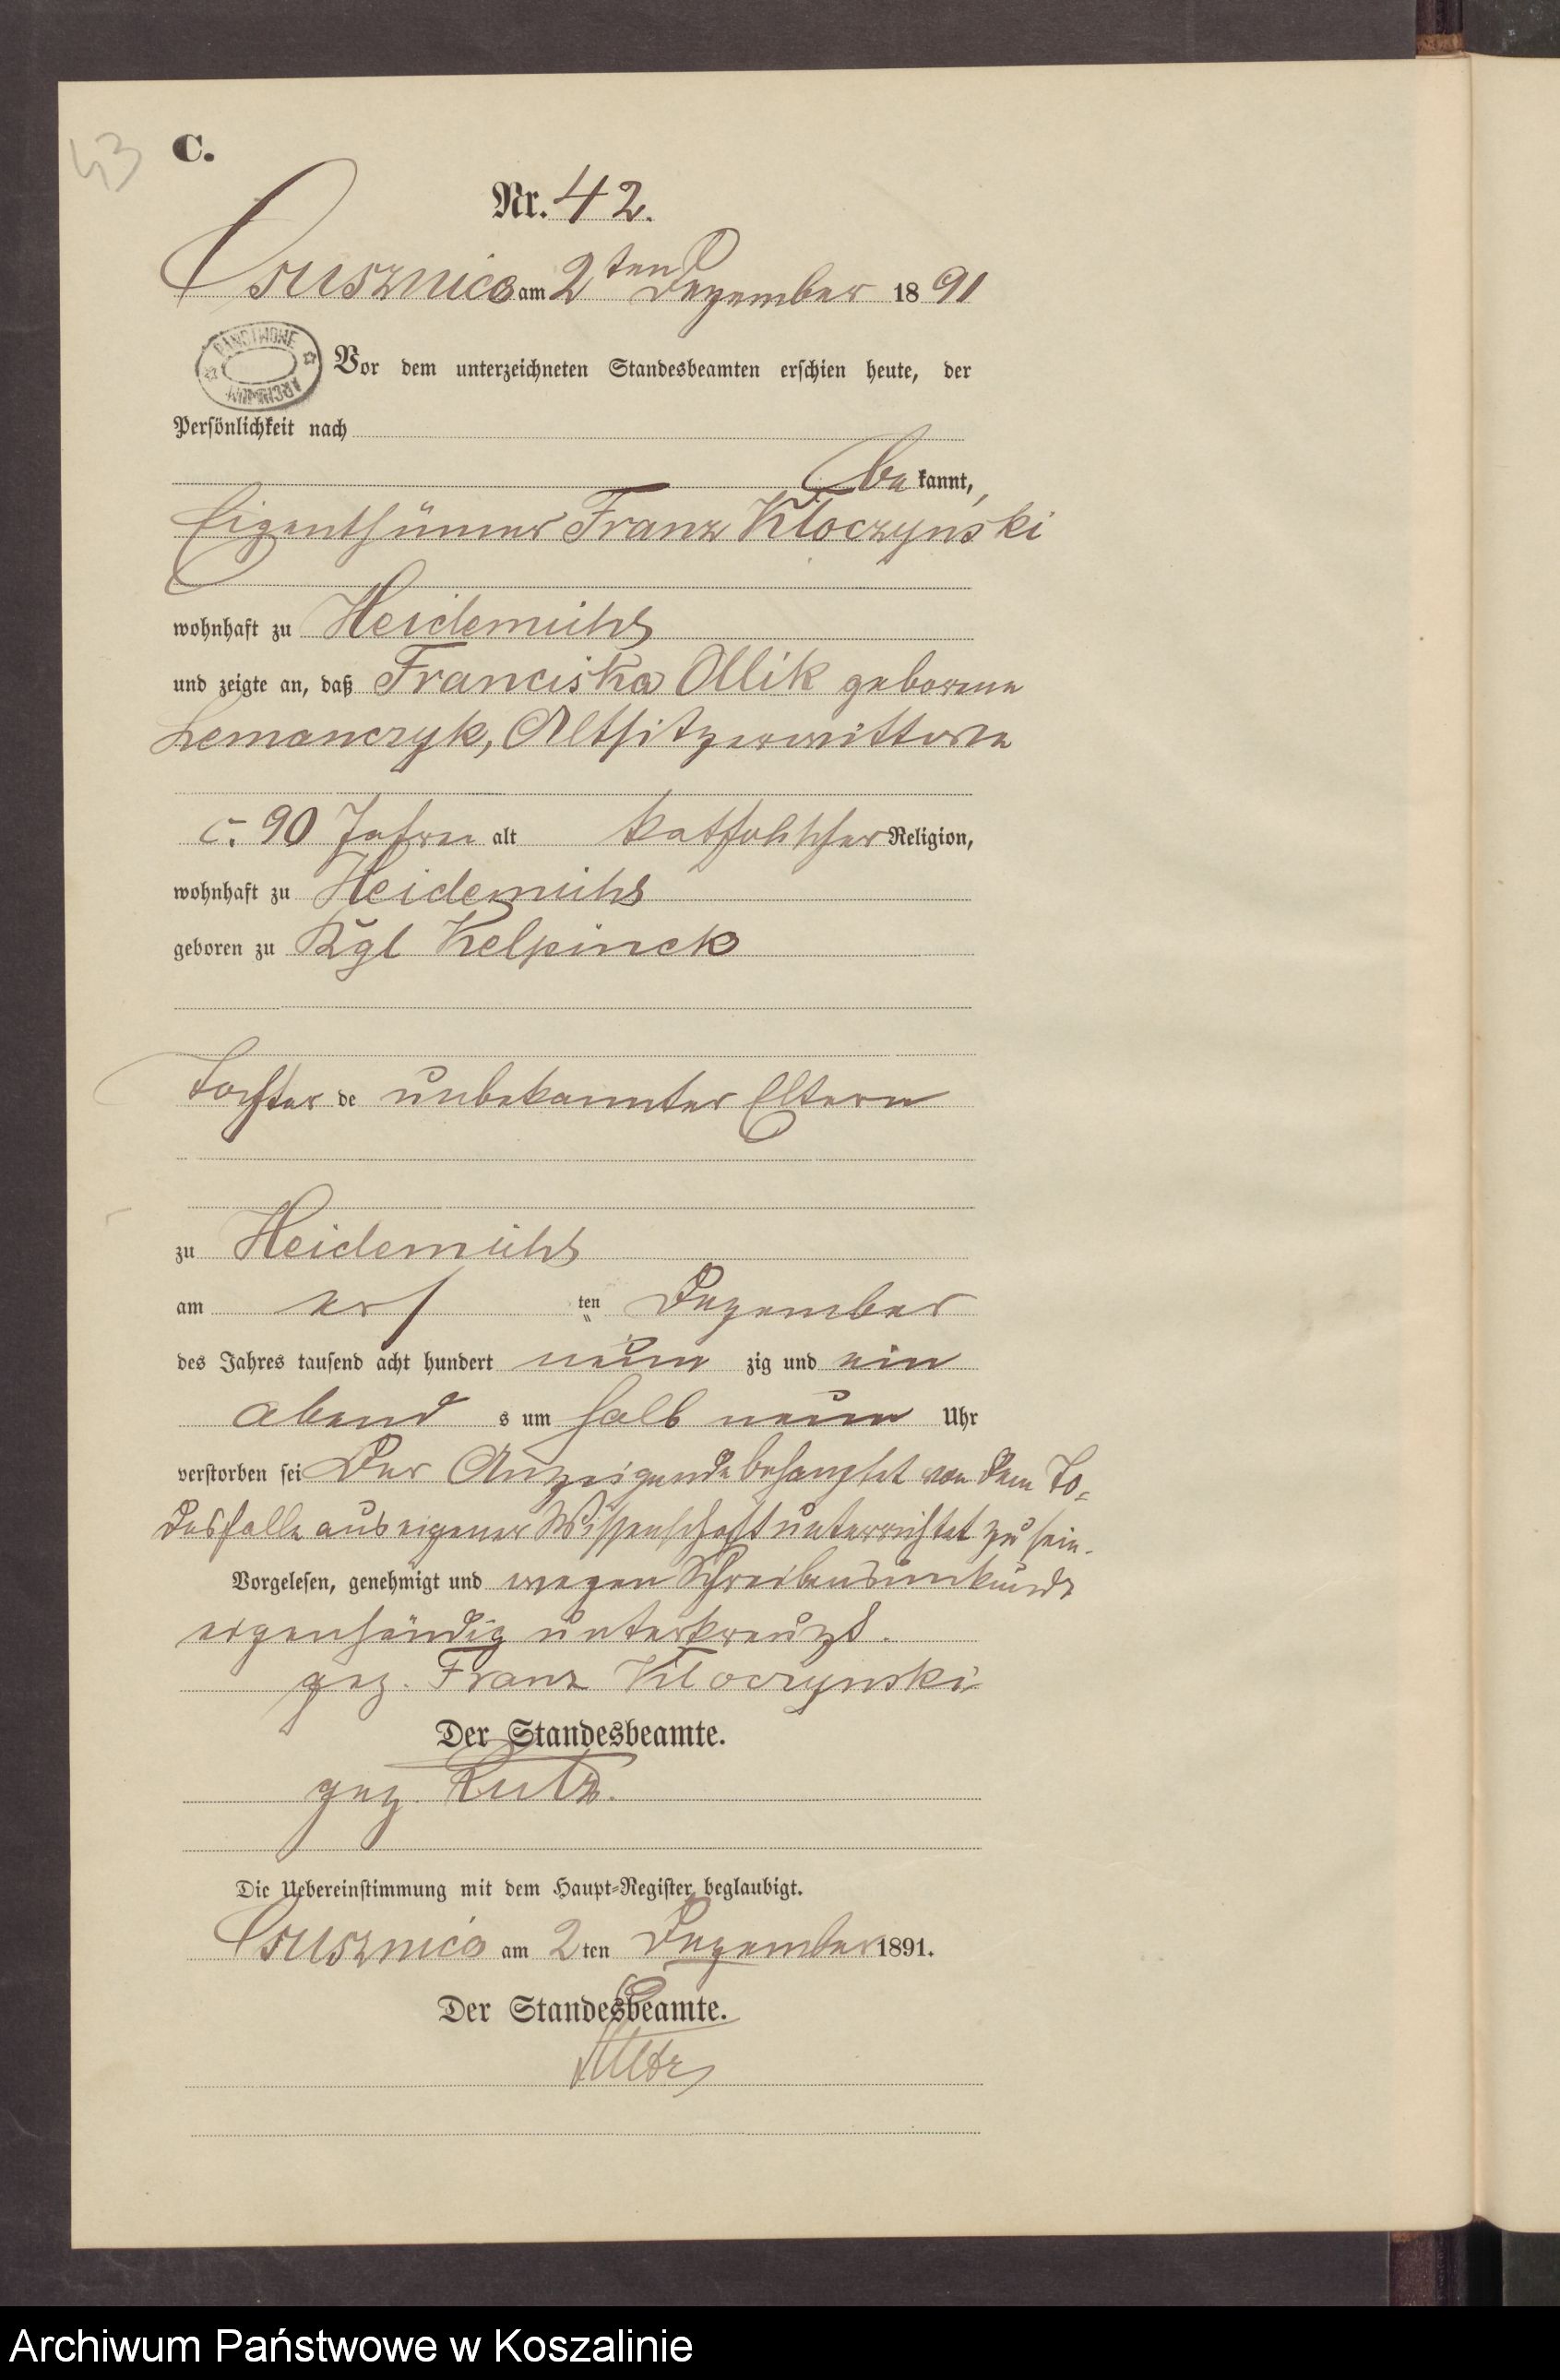 43
C.
Nr. 42.
Ossusznica am 2ten Dezember 1891
PANSTWOWE ARCHIWUM
Vor dem unterzeichneten Standesbeamten erschien heute, der
Persönlichkeit nach
be kannt,
Eigenthümer Franz Kloczyński
wohnhaft zu Heidemühl
und zeigte an, daß Franciska Ollik geborene
Lemanczyk, Altsitzerwittwe
c. 90 Jahre alt katholischer Religion,
wohnhaft zu Heidemühl
geboren zu Kgl Kelpinck
Tochter de unbekannter Eltern
zu Heidemühl
am ers ten Dezember
des Jahres tausend acht hundert neun zig und ein
abend s um halb neun Uhr
verstorben sei Der Anzeigende behauptet von dem To-
desfalle aus eigener Wissenschaft unterrichtet zu sein.
Vorgelesen, genehmigt und wegen Schreibensunkunde
eigenhändig unterkreuzt.
gez. Franz Kloczynski
Der Standesbeamte.
gez. Rutz.
Die Uebereinstimmung mit dem Haupt-Register beglaubigt.
Ossusznica am 2ten Dezember 1891.
Der Standesbeamte.
Rutz
Archiwum Państwowe w Koszalinie